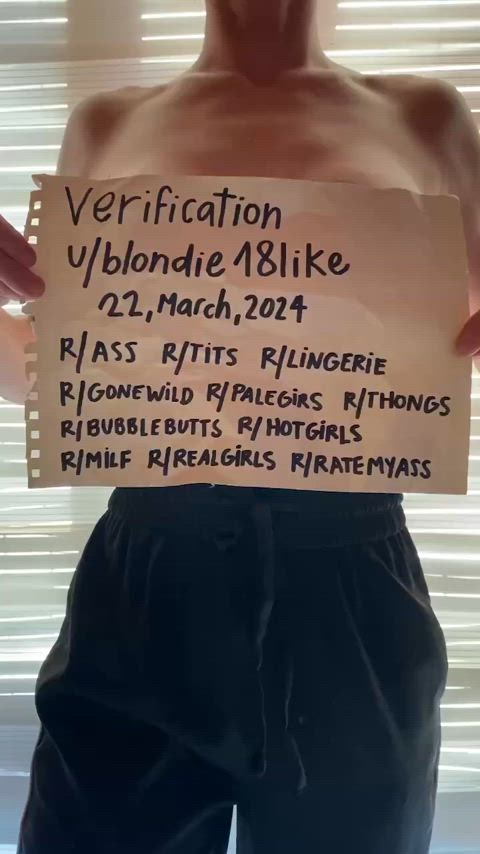 Verification
u/blondie18like
22,March,2024
R/ASS R/TiTS R/LiNGERiE
R/GONEWiLD R/PALEGiRS R/THONGS
R/BUBBLEBUTTS R/HOTGiRLS
R/MiLF R/REALGiRLS R/RATEMYASS